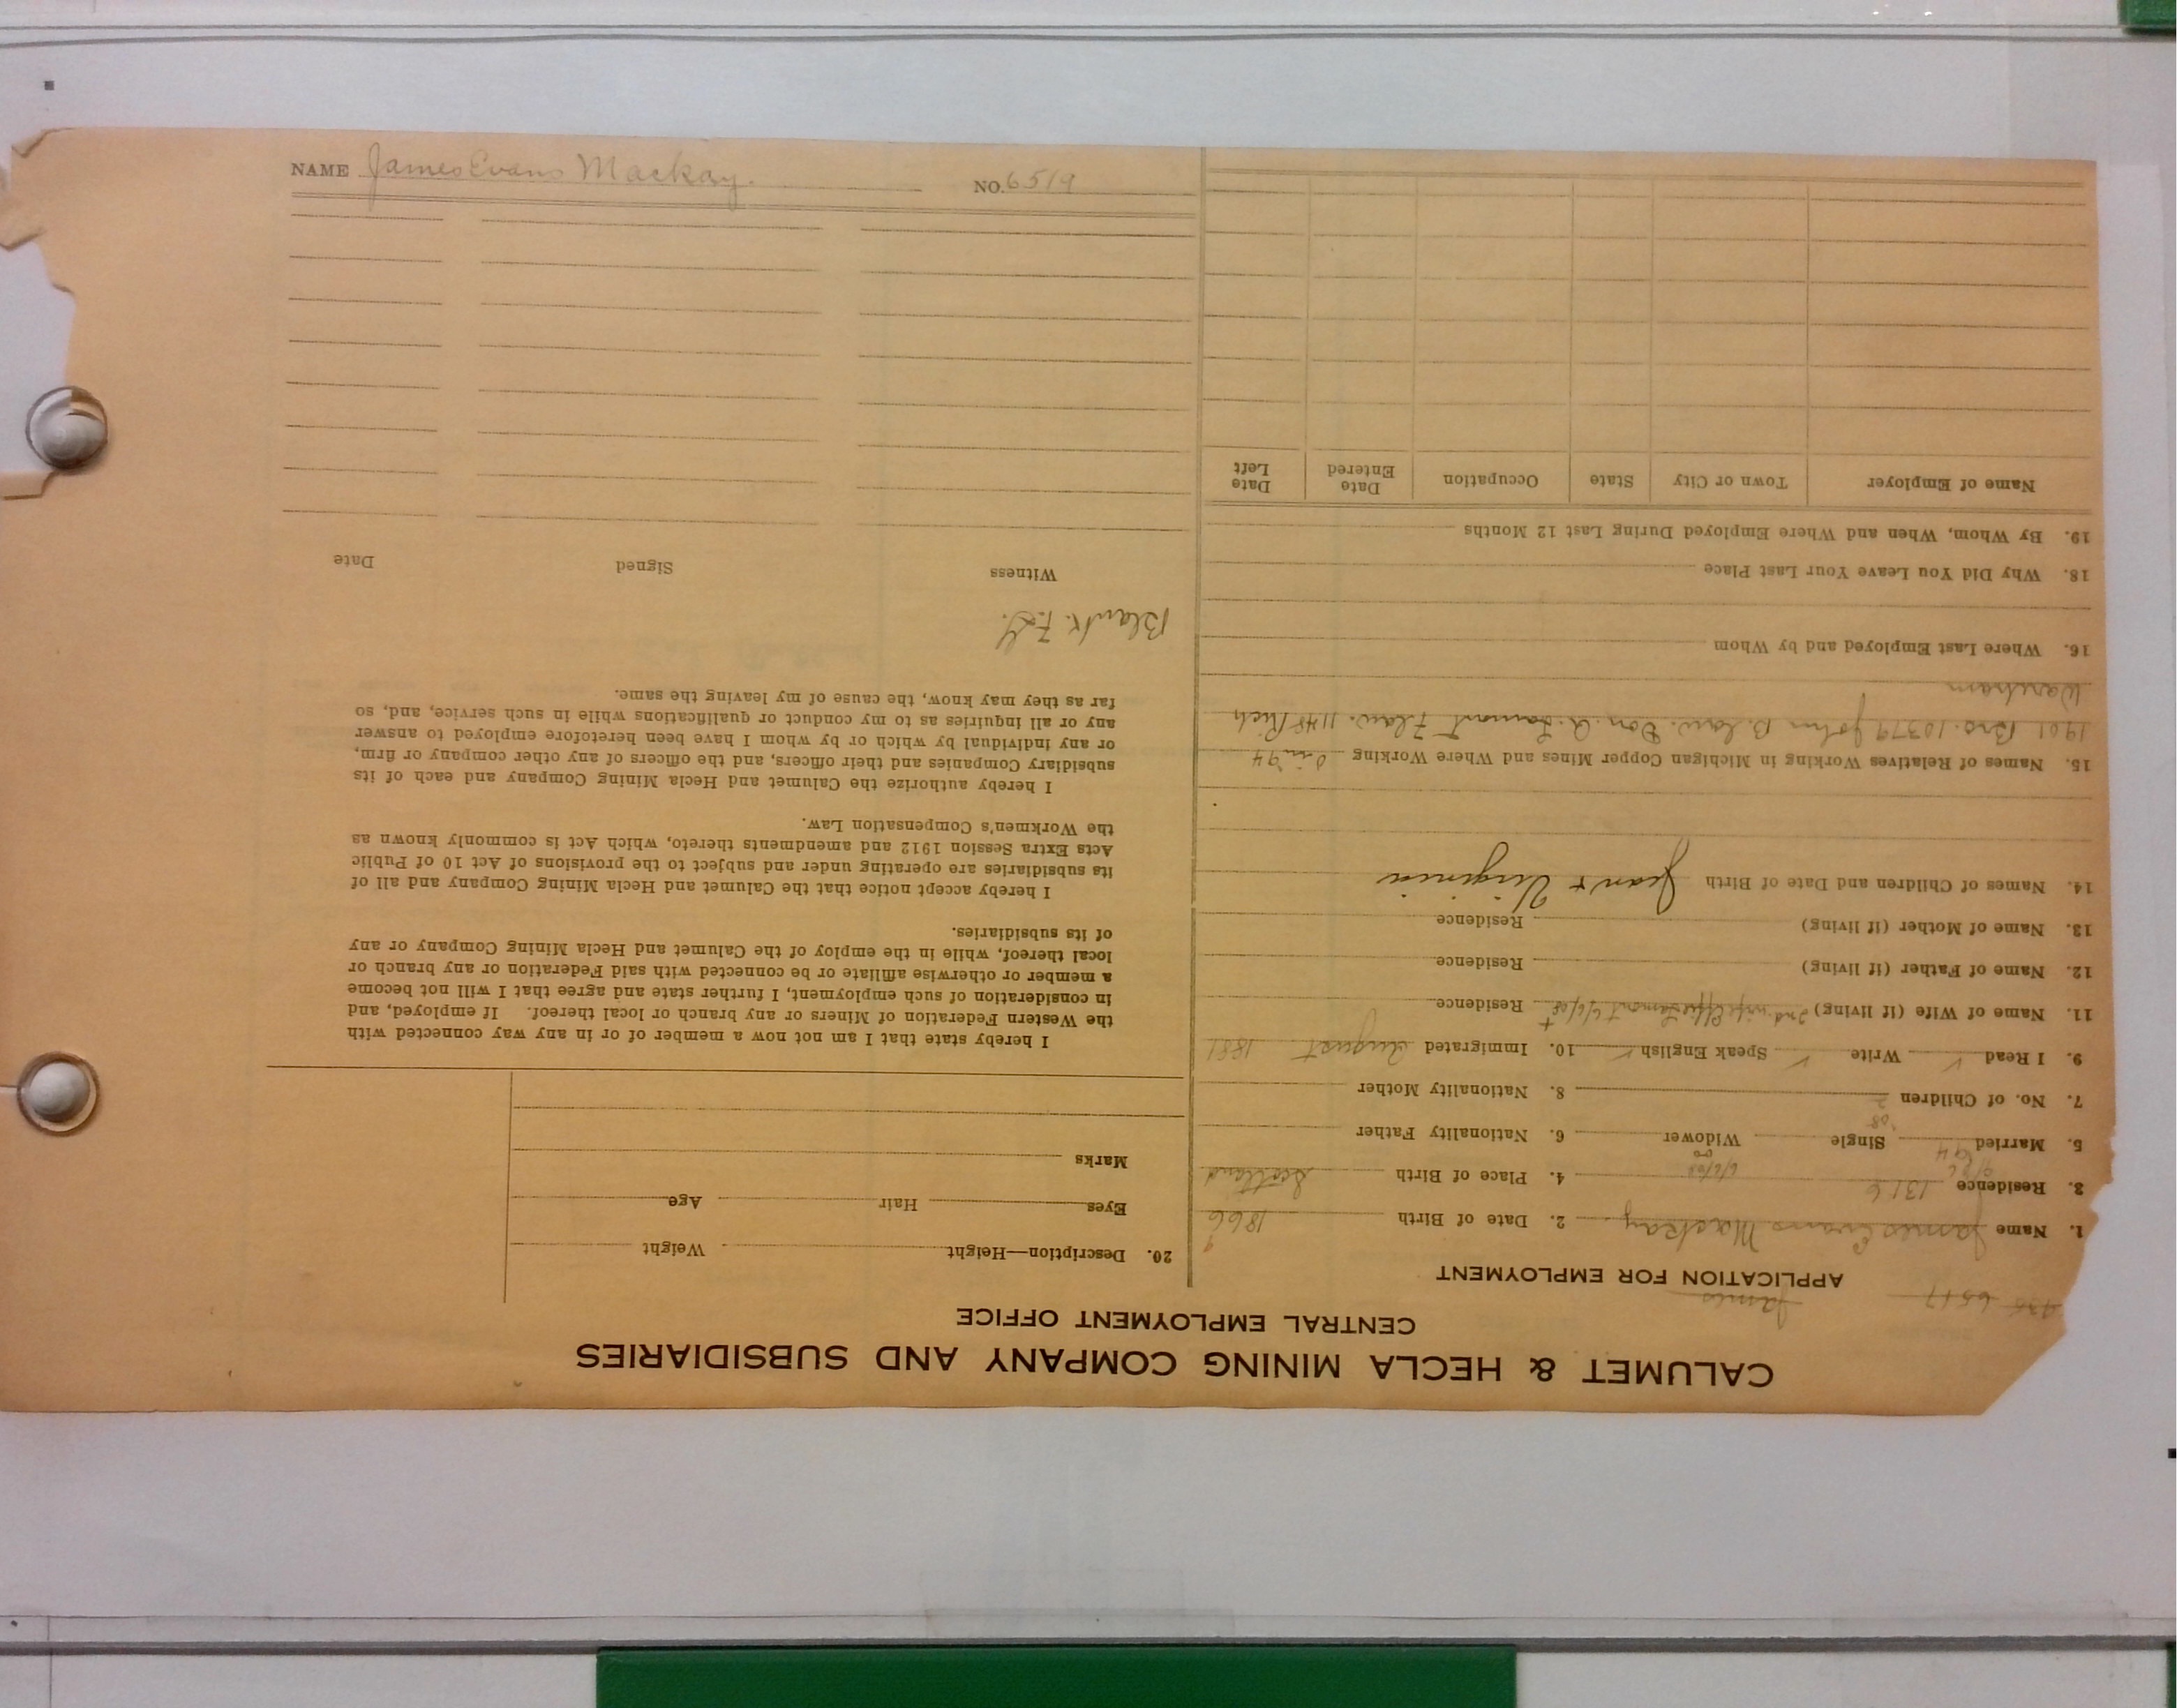 CALUMET & HECLA MINING COMPANY AND SUBSIDIARIES
CENTRAL EMPLOYMENT OFFICE
James
APPLICATION FOR EMPLOYMENT
1. Name James Evans Mackay 2. Date of Birth 1866
3. Residence 1316 4. Place of Birth Scotland
5. Married '94 '08 Single Widower 6. Nationality Father
7. No. of Children 2 8. Nationality Mother
9. I Read ✓ Write ✓ Speak English ✓ 10. Immigrated August 1881
11. Name of Wife (if living) 2nd. wife Effie Lamont 6/6/08 Residence
12. Name of Father (if living) Residence
13. Name of Mother (if living) Residence
14. Names of Children and Date of Birth Jean + Virginia
15. Names of Relatives Working in Michigan Copper Mines and Where Working
1901 Bro. 10379 John B. law. Don. A. Lamont F law. 1148 Rich
Wareham
16. Where Last Employed and by Whom
18. Why Did You Leave Your Last Place
19. By Whom, When and Where Employed During Last 12 Months
Name of Employer Town or City State Occupation Date Entered Date Left
20. Description—Height Weight
Eyes Hair Age
Marks
I hereby state that I am not now a member of or in any way connected with
the Western Federation of Miners or any branch or local thereof. If employed, and
in consideration of such employment, I further state and agree that I will not become
a member or otherwise affiliate or be connected with said Federation or any branch or
local thereof, while in the employ of the Calumet and Hecla Mining Company or any
of its subsidiaries.
I hereby accept notice that the Calumet and Hecla Mining Company and all of
its subsidiaries are operating under and subject to the provisions of Act 10 of Public
Acts Extra Session 1912 and amendments thereto, which Act is commonly known as
the Workmen's Compensation Law.
I hereby authorize the Calumet and Hecla Mining Company and each of its
subsidiary Companies and their officers, and the officers of any other company or firm,
or any individual by which or by whom I have been heretofore employed to answer
any or all inquiries as to my conduct or qualifications while in such service, and, so
far as they may know, the cause of my leaving the same.
Blank.
Witness Signed Date
NAME James Evans Mackay. NO. 6519